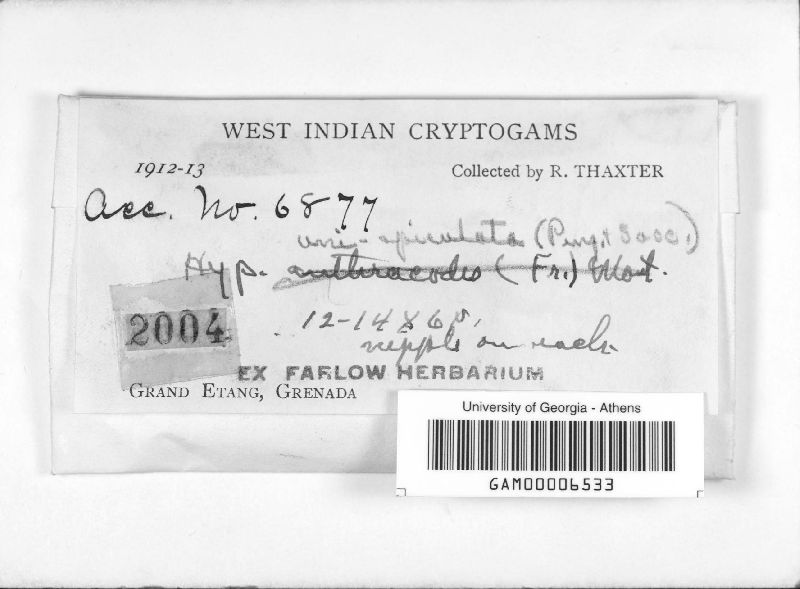 WEST INDIAN CRYPTOGAMS
1912-13 Collected by R. THAXTER
Acc. No. 6877
uni-apiculata (Penz. & Sacc.)
Hyp. anthracodes (Fr.) Mont.
2004
12-14 x 6 µ,
nipple on each
EX FARLOW HERBARIUM
GRAND ETANG, GRENADA
University of Georgia - Athens
GAM00006533